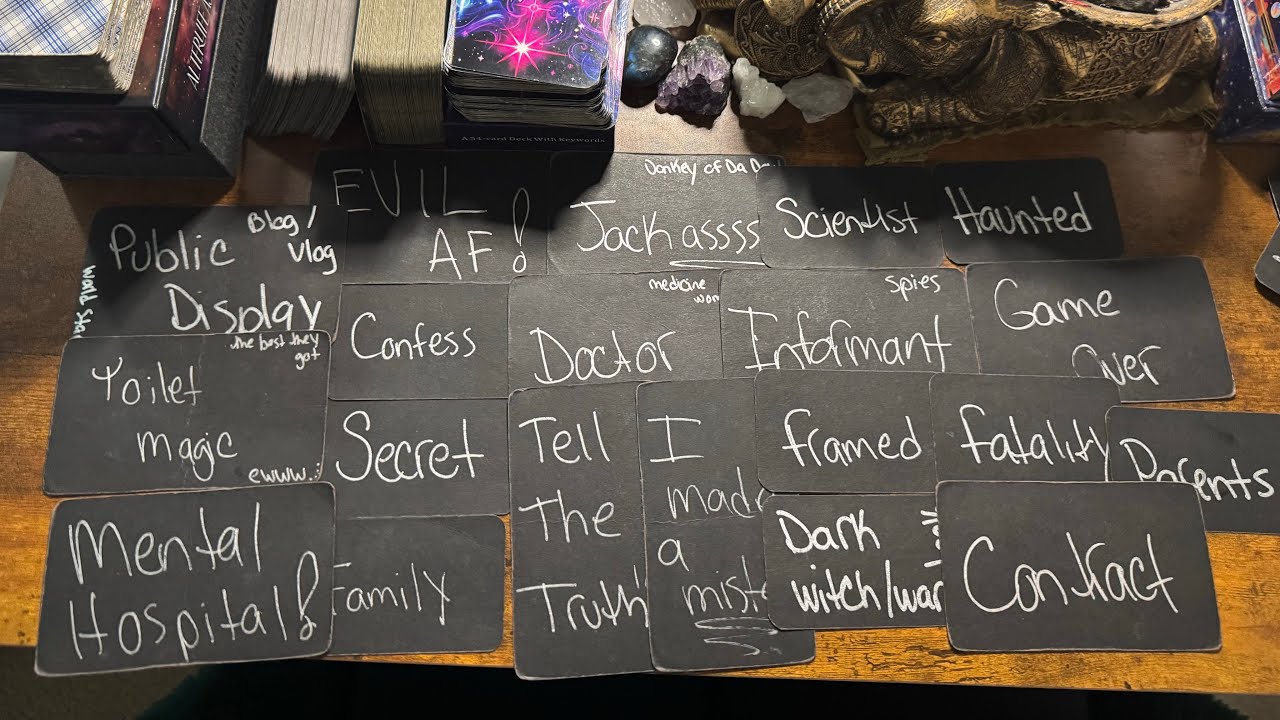 A 54-card Deck With Keywords
EVIL
AF!
Donkey of Da
Jackassss
Scientist
Haunted
Public
Blog/
Vlog
Display
World
Confess
medicine
Doctor
spies
Informant
Game
Over
the best they
got
Toilet
magic
ewww..
Secret
Tell
The
Truth
I
made
a
framed
fatality
Parents
Mental
Hospital!
Family
Dark
witch/
Contract